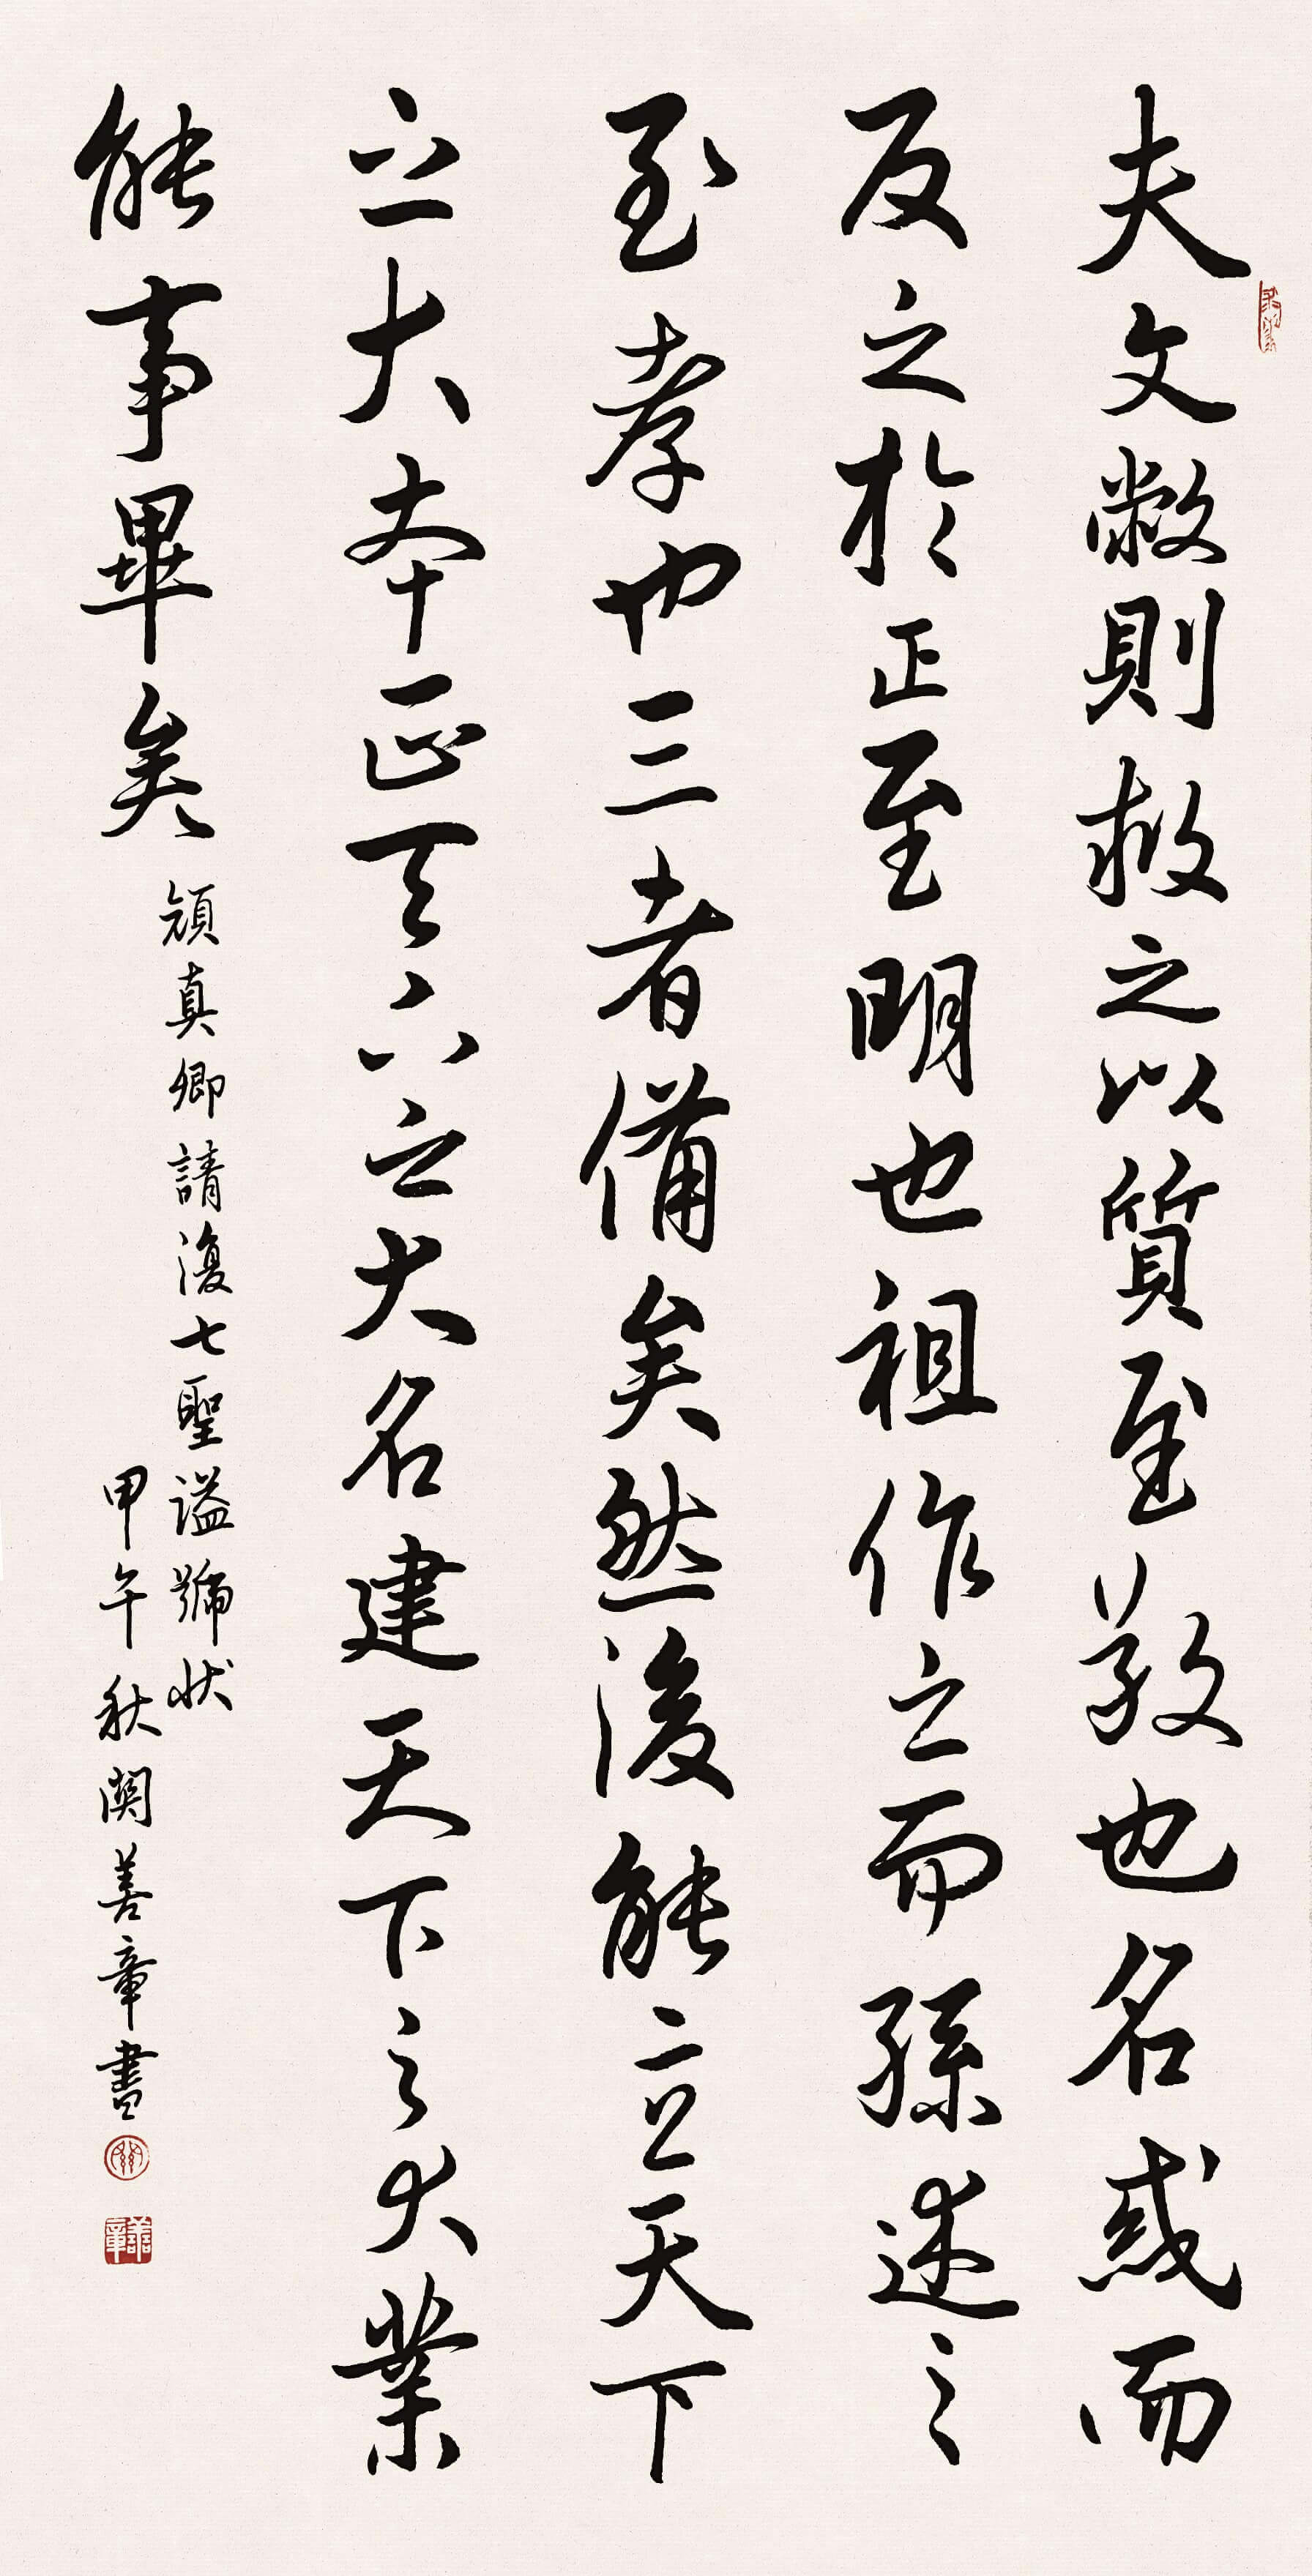 夫文敝則救之以質至敬也名惑而
反之於正至明也祖作之而孫述之
至孝也三者備矣然後能立天下
之大本正天下之大名建天下之大業
能事畢矣
顏真卿請復七聖謚號狀
甲午秋關善章書
善章